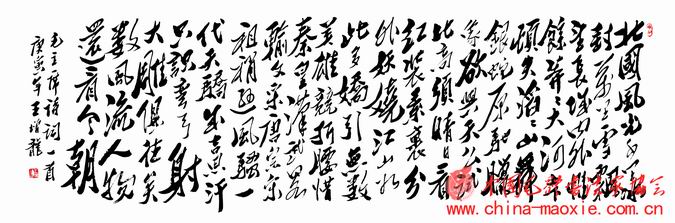 北國風光千里冰
封萬里雪飘
望長城内外惟
餘莽莽大河上下
頓失滔滔山舞
銀蛇原馳蠟
象欲與天公試
比高須晴日看
红装素裹分
外妖嬈江山如
此多嬌引無數
英雄競折腰惜
秦皇漢武略
輸文采唐宗宋
祖稍遜風騷一
代天驕成吉思汗
只識彎弓射
大雕俱往矣
数風流人物
還看今朝
毛主席詩詞一首
庚寅年王增龍
www.china-maoxie.com.cn